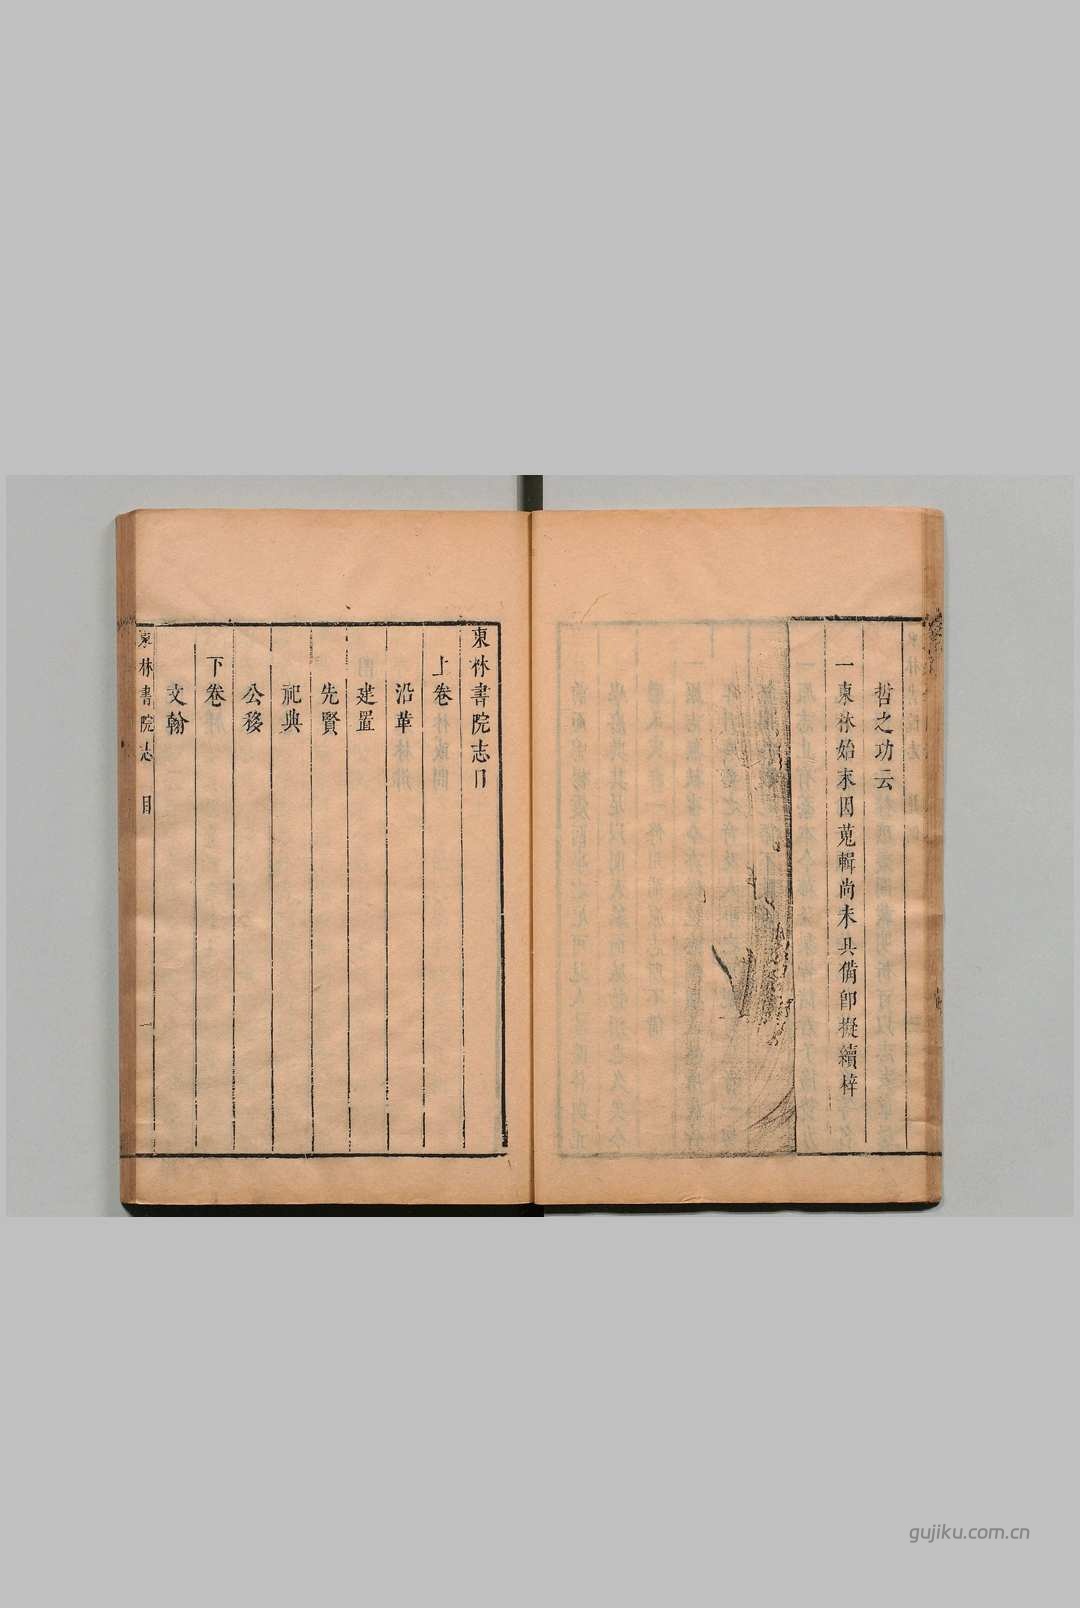 哲之功云
一東林始末因蒐輯尚未具備卽擬續梓
東林書院志目
上卷
沿革
建置
先賢
祀典
公移
下卷
文翰
東林書院志 目 一
gujiku.com.cn